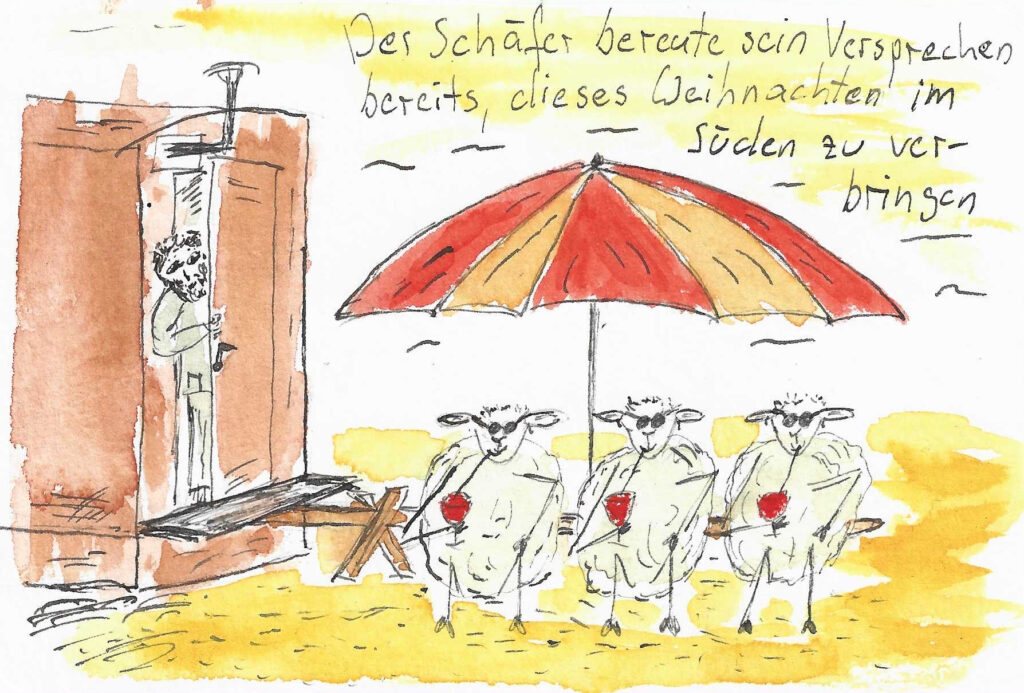 Der Schäfer bereute sein Versprechen
bereits, dieses Weihnachten im
Süden zu ver-
bringen